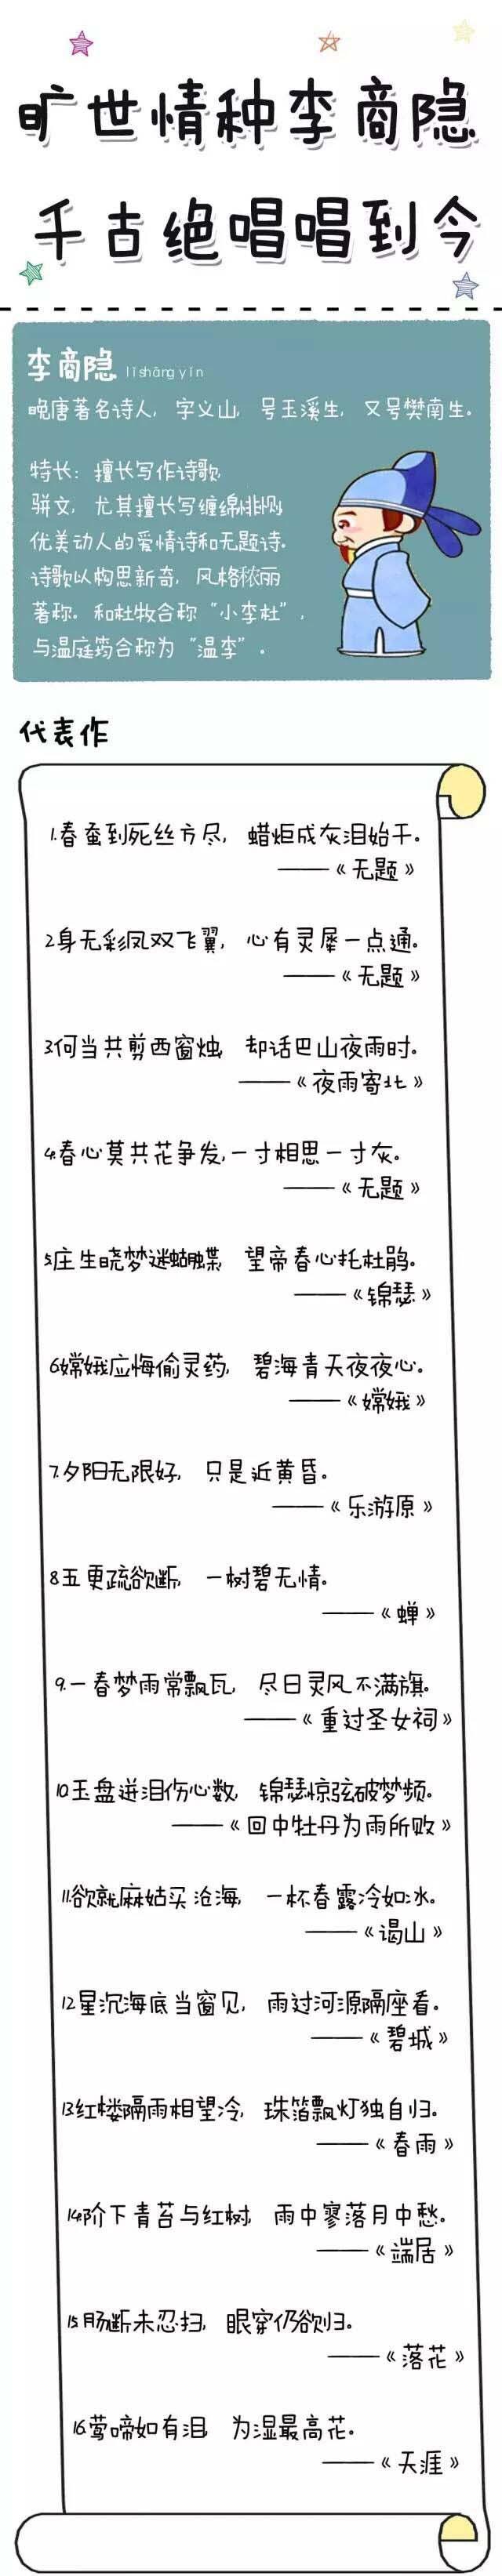 旷世情种李商隐
千古绝唱唱到今
李商隐 lǐshāngyǐn
晚唐著名诗人，字义山，号玉溪生，又号樊南生。
特长：擅长写作诗歌
骈文，尤其擅长写缠绵悱恻
优美动人的爱情诗和无题诗。
诗歌以构思新奇，风格秾丽
著称。和杜牧合称“小李杜”，
与温庭筠合称为“温李”。
代表作
1.春蚕到死丝方尽，蜡炬成灰泪始干。
——《无题》
2身无彩凤双飞翼，心有灵犀一点通。
——《无题》
3.何当共剪西窗烛，却话巴山夜雨时。
——《夜雨寄北》
4.春心莫共花争发,一寸相思一寸灰。
——《无题》
5.庄生晓梦迷蝴蝶，望帝春心托杜鹃。
——《锦瑟》
6.嫦娥应悔偷灵药，碧海青天夜夜心。
——《嫦娥》
7.夕阳无限好，只是近黄昏。
——《乐游原》
8.五更疏欲断，一树碧无情。
——《蝉》
9.一春梦雨常飘瓦，尽日灵风不满旗。
——《重过圣女祠》
10.玉盘迸泪伤心数，锦瑟惊弦破梦频。
——《回中牡丹为雨所败》
11.欲就麻姑买沧海，一杯春露冷如冰。
——《谒山》
12.星沉海底当窗见，雨过河源隔座看。
——《碧城》
13.红楼隔雨相望冷，珠箔飘灯独自归。
——《春雨》
14.阶下青苔与红树，雨中寥落月中愁。
——《端居》
15.肠断未忍扫，眼穿仍欲归。
——《落花》
16.莺啼如有泪，为湿最高花。
——《天涯》